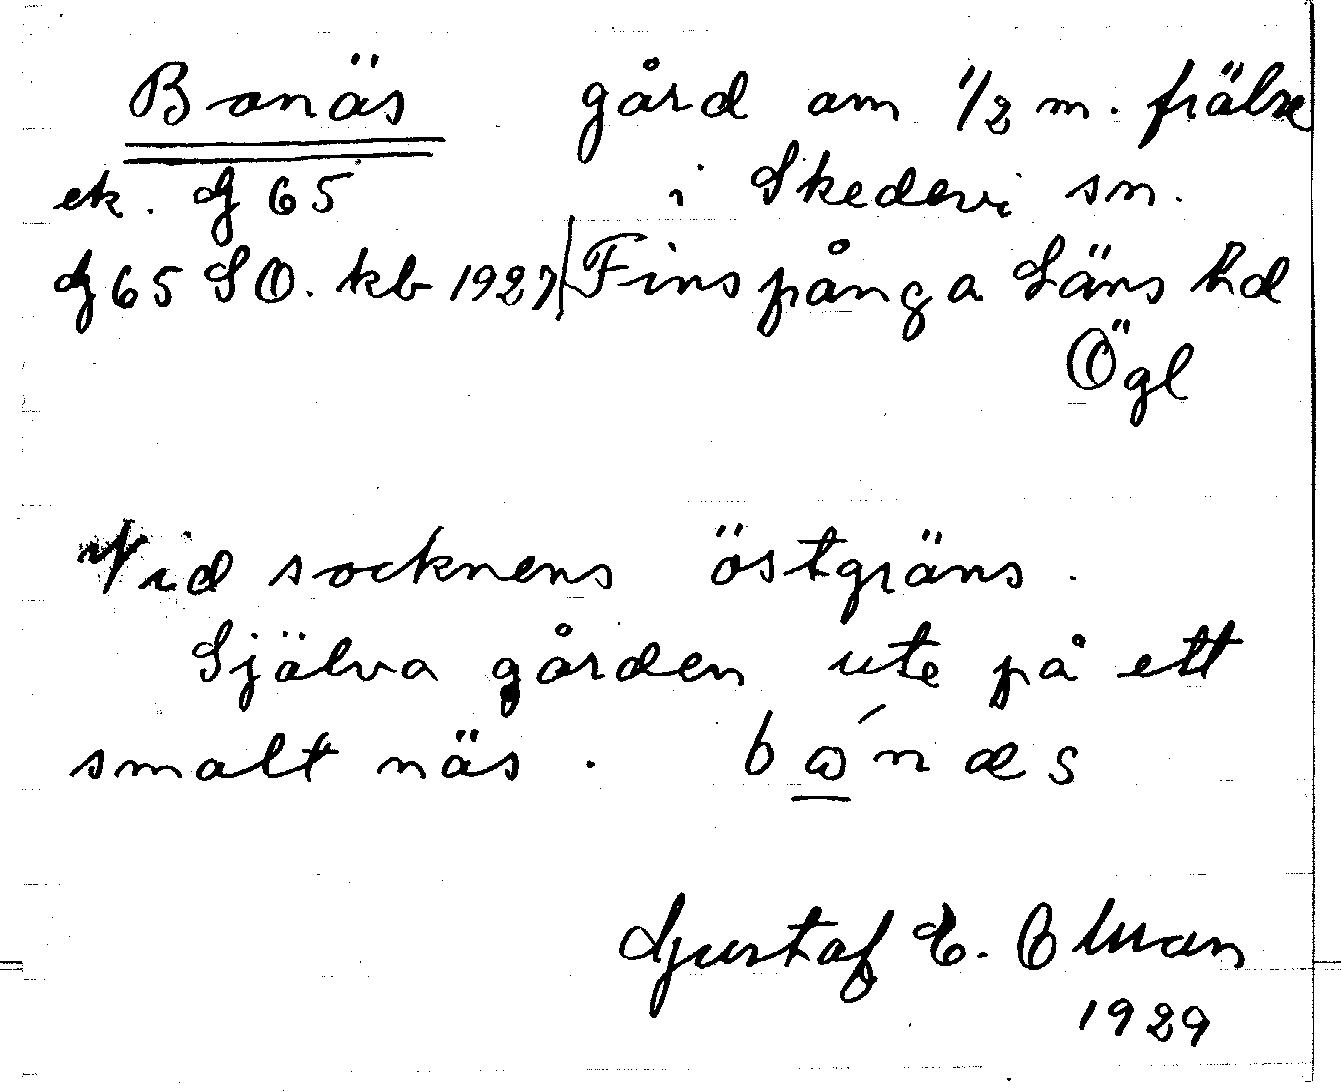 Bonäs gård om 1/2 m. frälse
ek. G 65 i Skedevi sn.
G 65 SO. kb 1927 Finspånga Läns hd
Ögl
Vid socknens östgräns.
Själva gården ute på ett
smalt näs. bǿnæs
Gustaf E. Olman
1929